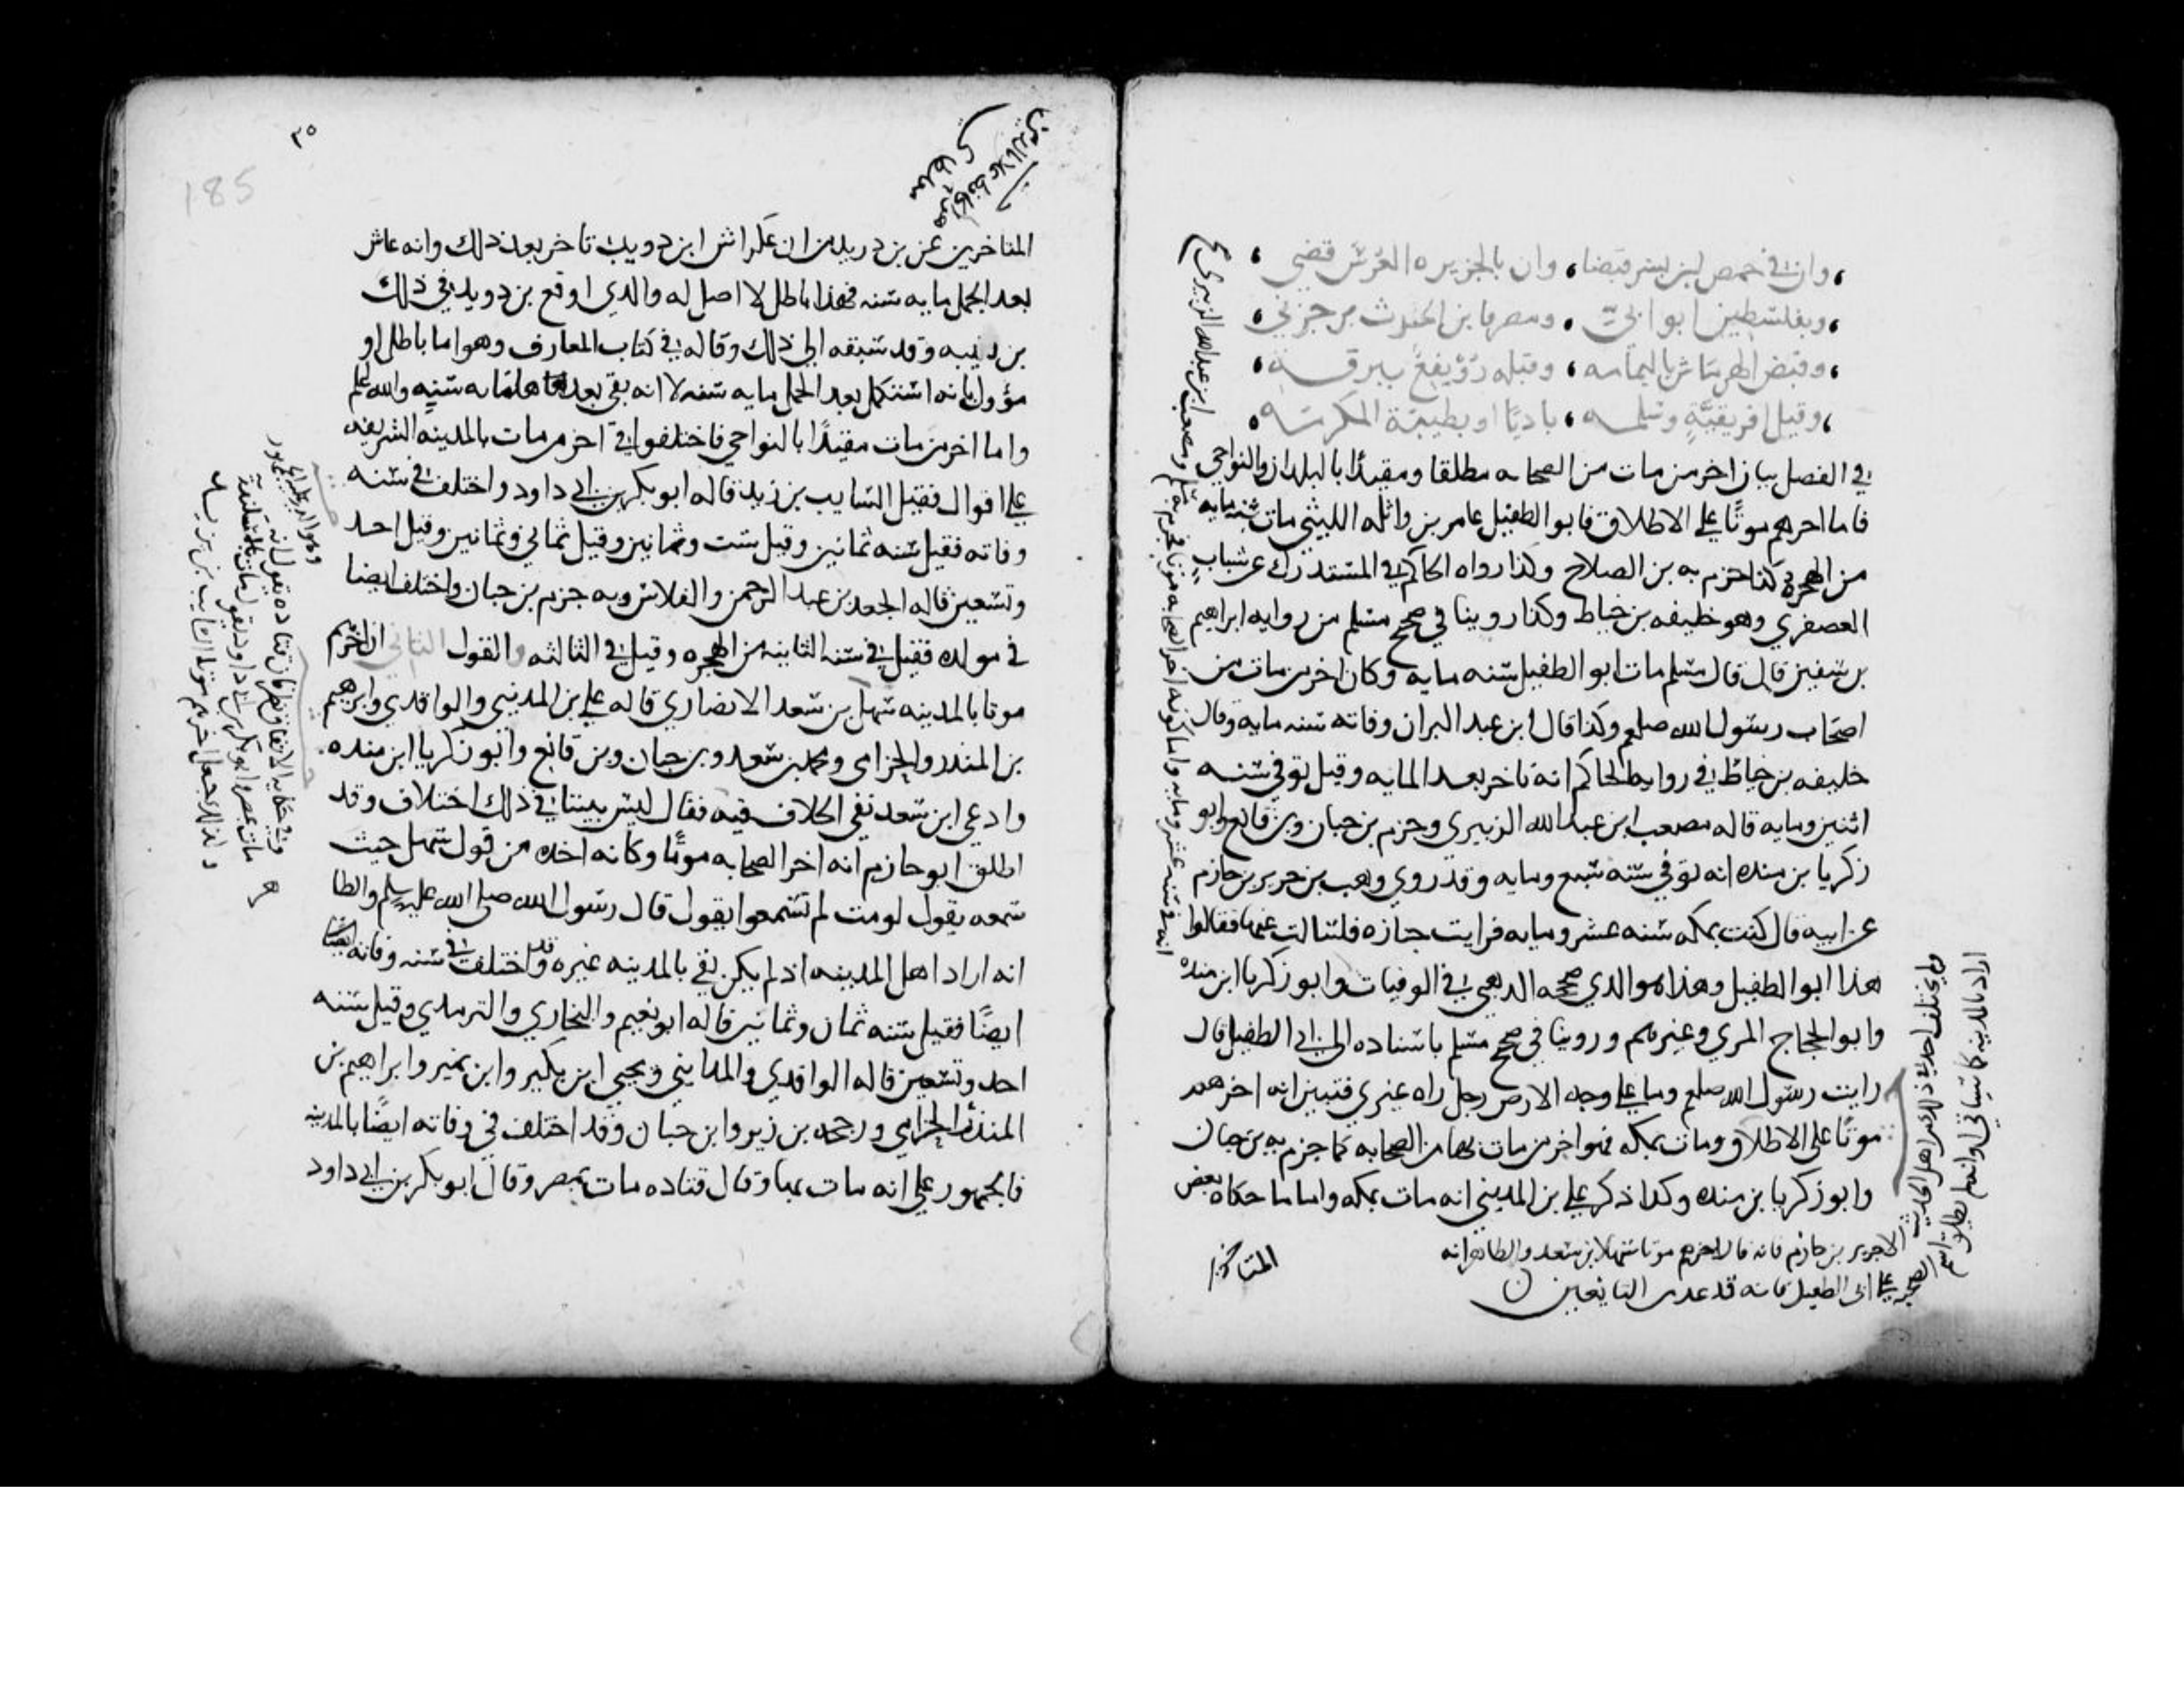 وان في حمص ابن بسر قبضا، وان بالجزيره العرس قضى،
وبفلسطين ابو ابيّ، ومصر فابن الحرث بن جزي،
وقبض الهرماس باليمامه، وقبله رويفع ببرقــــه،
وقيل افريقيّةٍ وسلمــه، باديًا او بطيبة المكرمــه
في الفصل بيان اخر من مات من الصحابه مطلقا ومقيدًا بالبلدان والنواحي
فاما اخرهم موتًا على الاطلاق فابو الطفيل عامر بن واثله الليثي مات سنه مايه
من الهجرة كذا جزم به بن الصلاح وكذا رواه الحاكم في المستدرك عن شبابٍ
العصفري وهو خليفه بن خياط وكذا روينا في صحيح مسلم من روايه ابراهيم
بن سفين قال قال مسلم مات ابو الطفيل سنه مايه وكان اخر من مات من
اصحاب رسول الله صلعم وكذا قال ابن عبد البر ان وفاته سنه مايه وقال
خليفه بن خياط في روايه الحاكم انه تاخر بعد المايه وقيل توفي سنـه
اثنين ومايه قاله مصعب ابن عبد الله الزبيري وجزم بن حبان وبن قانع وابو
زكريا بن منده انه توفي سنه سبع ومايه وقد روي وهب بن جرير بن حازم
عن ابيه قال كنت بمكه سنه عشر ومايه فرايت جنازه فسالت عنها فقالوا
هذا ابو الطفيل وهذا هو الذي صححه الذهبي في الوفيات وابو زكريا ابن منده
وابو الحجاج المزي وغيرهم وروينا في صحيح مسلم باسناده الى ابي الطفيل قال
رايت رسول الله صلعم وما على وجه الارض رجل راه غيري فتبين انه اخرهم
موتًا على الاطلاق ومات بمكه فهو اخر من مات بها من الصحابه كما جزم به بن حبان
وابو زكريا بن منده وكذا ذكر علي بن المديني انه مات بمكه واما ما حكاه بعض
المتاخرين
ولم يختلف احد في ذلك من اهل الحديث
الا جرير بن حازم فانه قال اخرهم موتا سهل بن سعد والظاهر انه
اراد بالمدينه كما سياتي او انه لم يطلق اسم
الصحبه على ابي الطفيل فانه قد عده من التابعين
ومصعب ابن عبد الله الزبيري
٢٥
185
هو الحافظ علا الدين
مغلطاي
المتاخرين عن بن دريد من ان عكراش ابن ذويب تاخر بعد ذلك وانه عاش
بعد الجمل مايه سنه فهذا باطل لا اصل له والذي اوقع بن دريد في ذلك
بن قتيبه وقد سبقه الى ذلك وقاله في كتاب المعارف وهو اما باطل او
مؤول بانه استكمل بعد الجمل مايه سنه لا انه بقي بعدها مايه سنه والله اعلم
واما اخر من مات مقيدًا بالنواحي فاختلفوا في اخر من مات بالمدينه الشريفه
على اقوال فقيل السايب بن زيد قاله ابو بكر بن ابي داود واختلف في سنه
وفاته فقيل سنه ثمانين وقيل ست وثمانين وقيل ثماني وثمانين وقيل احد
وتسعين قاله الجعد بن عبد الرحمن والفلاس وبه جزم بن حبان واختلف ايضا
في مولده فقيل في سنه الثانيه من الهجره وقيل في الثالثه والقول الثاني ان اخرهم
موتا بالمدينه سهل بن سعد الانصاري قاله علي بن المديني والواقدي وابرهيم
بن المنذر والحزامي ومحمد بن سعد وبن حبان وبن قانع وابو زكريا ابن منده
وادعي ابن سعد نفي الخلاف فيه فقال ليس بيننا في ذلك اختلاف وقد
اطلق ابو حازم انه اخر الصحابه موتًا وكانه اخذه من قول سهل حيث
سمعه يقول لو مت لم تسمعوا يقول قال رسول الله صلى الله عليه وسلم والظا
انه اراد اهل المدينه اذ لم يكن بقي بالمدينه غيره وقد اختلف في سنه وفاته
ايضًا فقيل سنه ثمان وثمانين قاله ابو نعيم والبخاري والترمذي وقيل سنه
احد وتسعين قاله الواقدي والمدايني ويحيي ابن بكير وابن نمير وابراهيم بن
المنذر الحزامي ورجحه بن زبر وابن حبان وقد اختلف في وفاته ايضًا بالمدينه
فالجمهور على انه مات بها وقال قتاده مات بمصر وقال ابو بكر بن ابي داود
وهو الذي عليه الجمهور